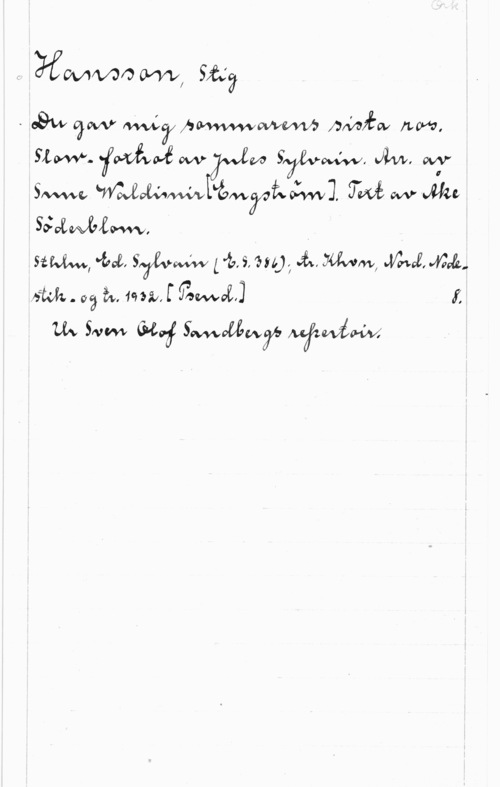 Ork
Hansson, Stig
Du gav mig sommarens sista ros.
Slow-foxtrot av Jules Sylvain. Arr. av
Sune Waldimir [Engström]. Text av Åke
Söderblom.
Sthlm, Ed. Sylvain (E.S. 386); tr. Khvn, Nord. Node-
stik. og tr. 1932. [Pseud.] 8.
Ur Sven Olof Sandbergs repertoir.